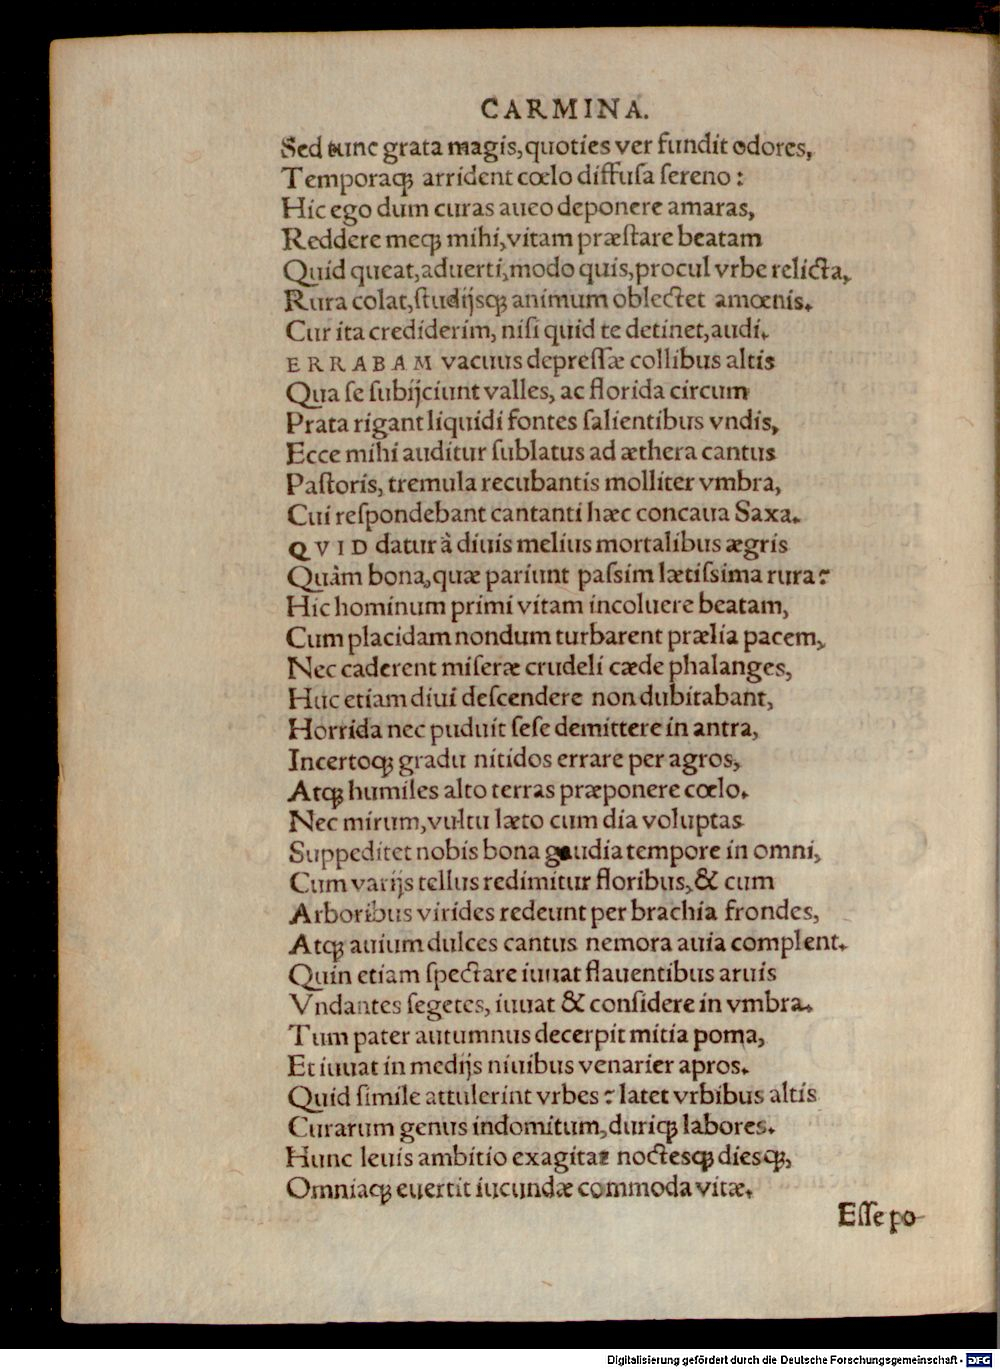 CARMINA.
Sed nunc grata magis, quoties ver fundit odores,
Temporaq; arrident cœlo diffusa sereno:
Hic ego dum curas aueo deponere amaras,
Reddere meq; mihi, vitam præstare beatam
Quid queat, aduerti, modo quis, procul vrbe relicta,
Rura colat, studijsq; animum oblectet amœnis.
Cur ita crediderim, nisi quid te detinet, audi.
ERRABAM vacuus depressæ collibus altis
Qua se subijciunt valles, ac florida circum
Prata rigant liquidi fontes salientibus vndis,
Ecce mihi auditur sublatus ad æthera cantus
Pastoris, tremula recubantis molliter vmbra,
Cui respondebant cantanti hæc concaua Saxa.
QVID datur à diuis melius mortalibus ægris
Quàm bona, quæ pariunt passim lætissima rura?
Hic hominum primi vitam incoluere beatam,
Cum placidam nondum turbarent prælia pacem,
Nec caderent miseræ crudeli cæde phalanges,
Huc etiam diui descendere non dubitabant,
Horrida nec puduit sese demittere in antra,
Incertoq; gradu nitidos errare per agros,
Atq; humiles alto terras præponere cœlo.
Nec mirum, vultu læto cum dia voluptas
Suppeditet nobis bona gaudia tempore in omni,
Cum varijs tellus redimitur floribus, & cum
Arboribus virides redeunt per brachia frondes,
Atq; auium dulces cantus nemora auia complent.
Quin etiam spectare iuuat flauentibus aruis
Vndantes segetes, iuuat & considere in vmbra.
Tum pater autumnus decerpit mitia poma,
Et iuuat in medijs niuibus venarier apros.
Quid simile attulerint vrbes? latet vrbibus altis
Curarum genus indomitum, duriq; labores.
Hunc leuis ambitio exagitat noctesq; diesq;,
Omniaq; euertit iucundæ commoda vitæ.
Esse po-
Digitalisierung gefördert durch die Deutsche Forschungsgemeinschaft - DFG